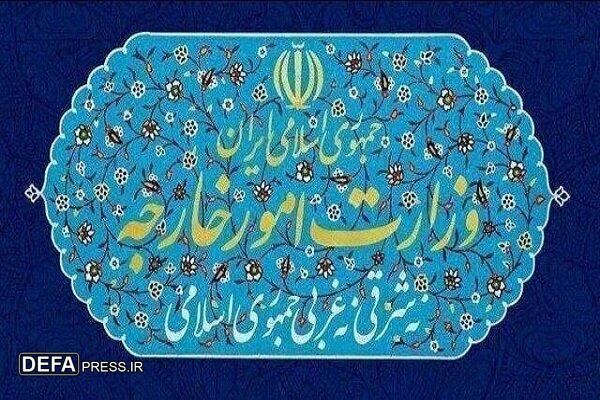 جمهوری اسلامی ایران
وزارت امور خارجه
نه شرقی نه غربی جمهوری اسلامی
DEFA PRESS.IR